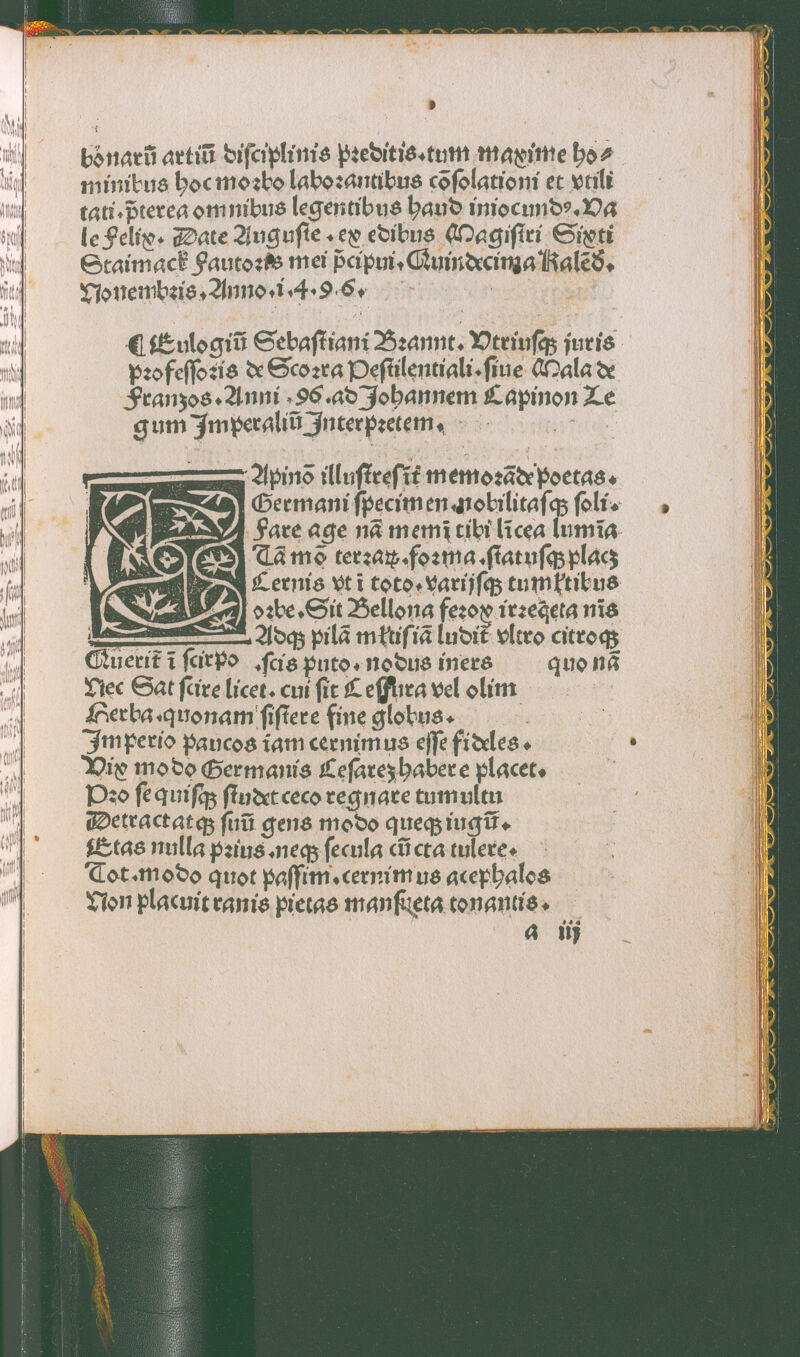 3
bonarū artiū diſciplinis preditis.tum maxime ho⸗
minibus hoc morbo laborantibus cōſolationi et vtili
tati.p̄terea omnibus legentibus haud iniocundꝰ.Va
le Felix. Date Auguſte.ex edibus Magiſtri Sixti
Staimack Fautoris mei p̄cipui.Quindecima Kalēd.
Nouembris.Anno.i.4.9.6.
¶ Eulogiū Sebaſtiani Brannt. Vtriuſqꝫ juris
profeſſoris de Scorra Peſtilentiali.ſiue Mala de
Franzos.Anni.96.ad Johannem Capinon Le
gum Imperaliū Interpretem.
CApinō illuſtreſit̄ memorāde poetas.
Germani ſpecimen.nobilitaſqꝫ ſoli.
Fare age nā memī tibi līcea lumīa
Tā mō terraꝝ.forma.ſtatuſqꝫ placꝫ
Cernis vt ī toto.varijſqꝫ tumltibus
orbe.Sit Bellona ferox irreq̄eta nīs
Adqꝫ pilā mltiſiā ludit̄ vltro citroqꝫ
Querit̄ ī ſcirpo .ſcis puto. nodus iners quo nā
Nec Sat ſcire licet. cui ſit Ceſſura vel olim
Herba.quonam ſiſtere fine globus.
Imperio paucos iam cernimus eſſe fideles.
Vix modo Germanis Ceſareꝫ habere placet.
Pro ſe quiſqꝫ ſtudet ceco regnare tumultu
Detractatqꝫ ſuū gens modo queqꝫ iugū.
Etas nulla prius.neqꝫ ſecula cūcta tulere.
Tot.modo quot paſſim.cernimus acephalos
Non placuit ranis pietas manſueta tonantis.
a iij